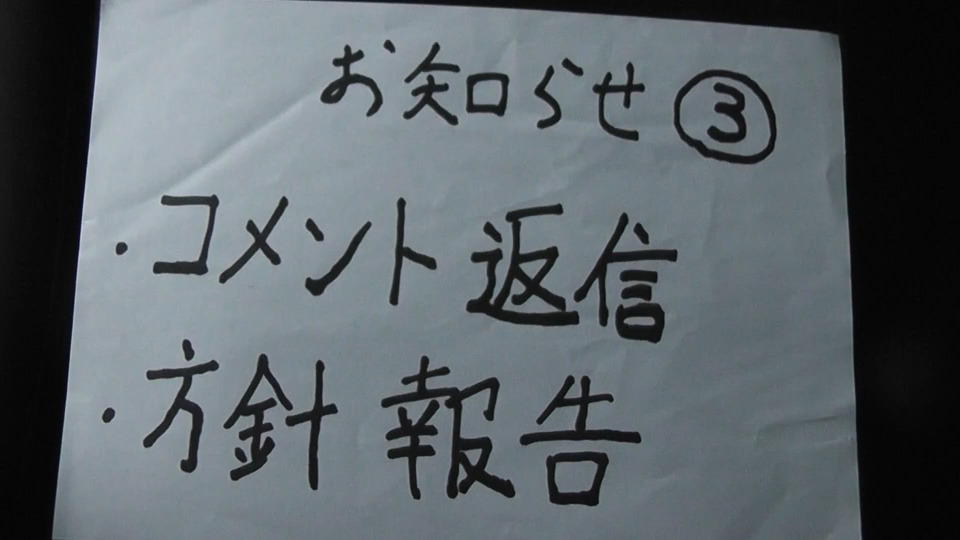 お知らせ③
・コメント返信
・方針報告